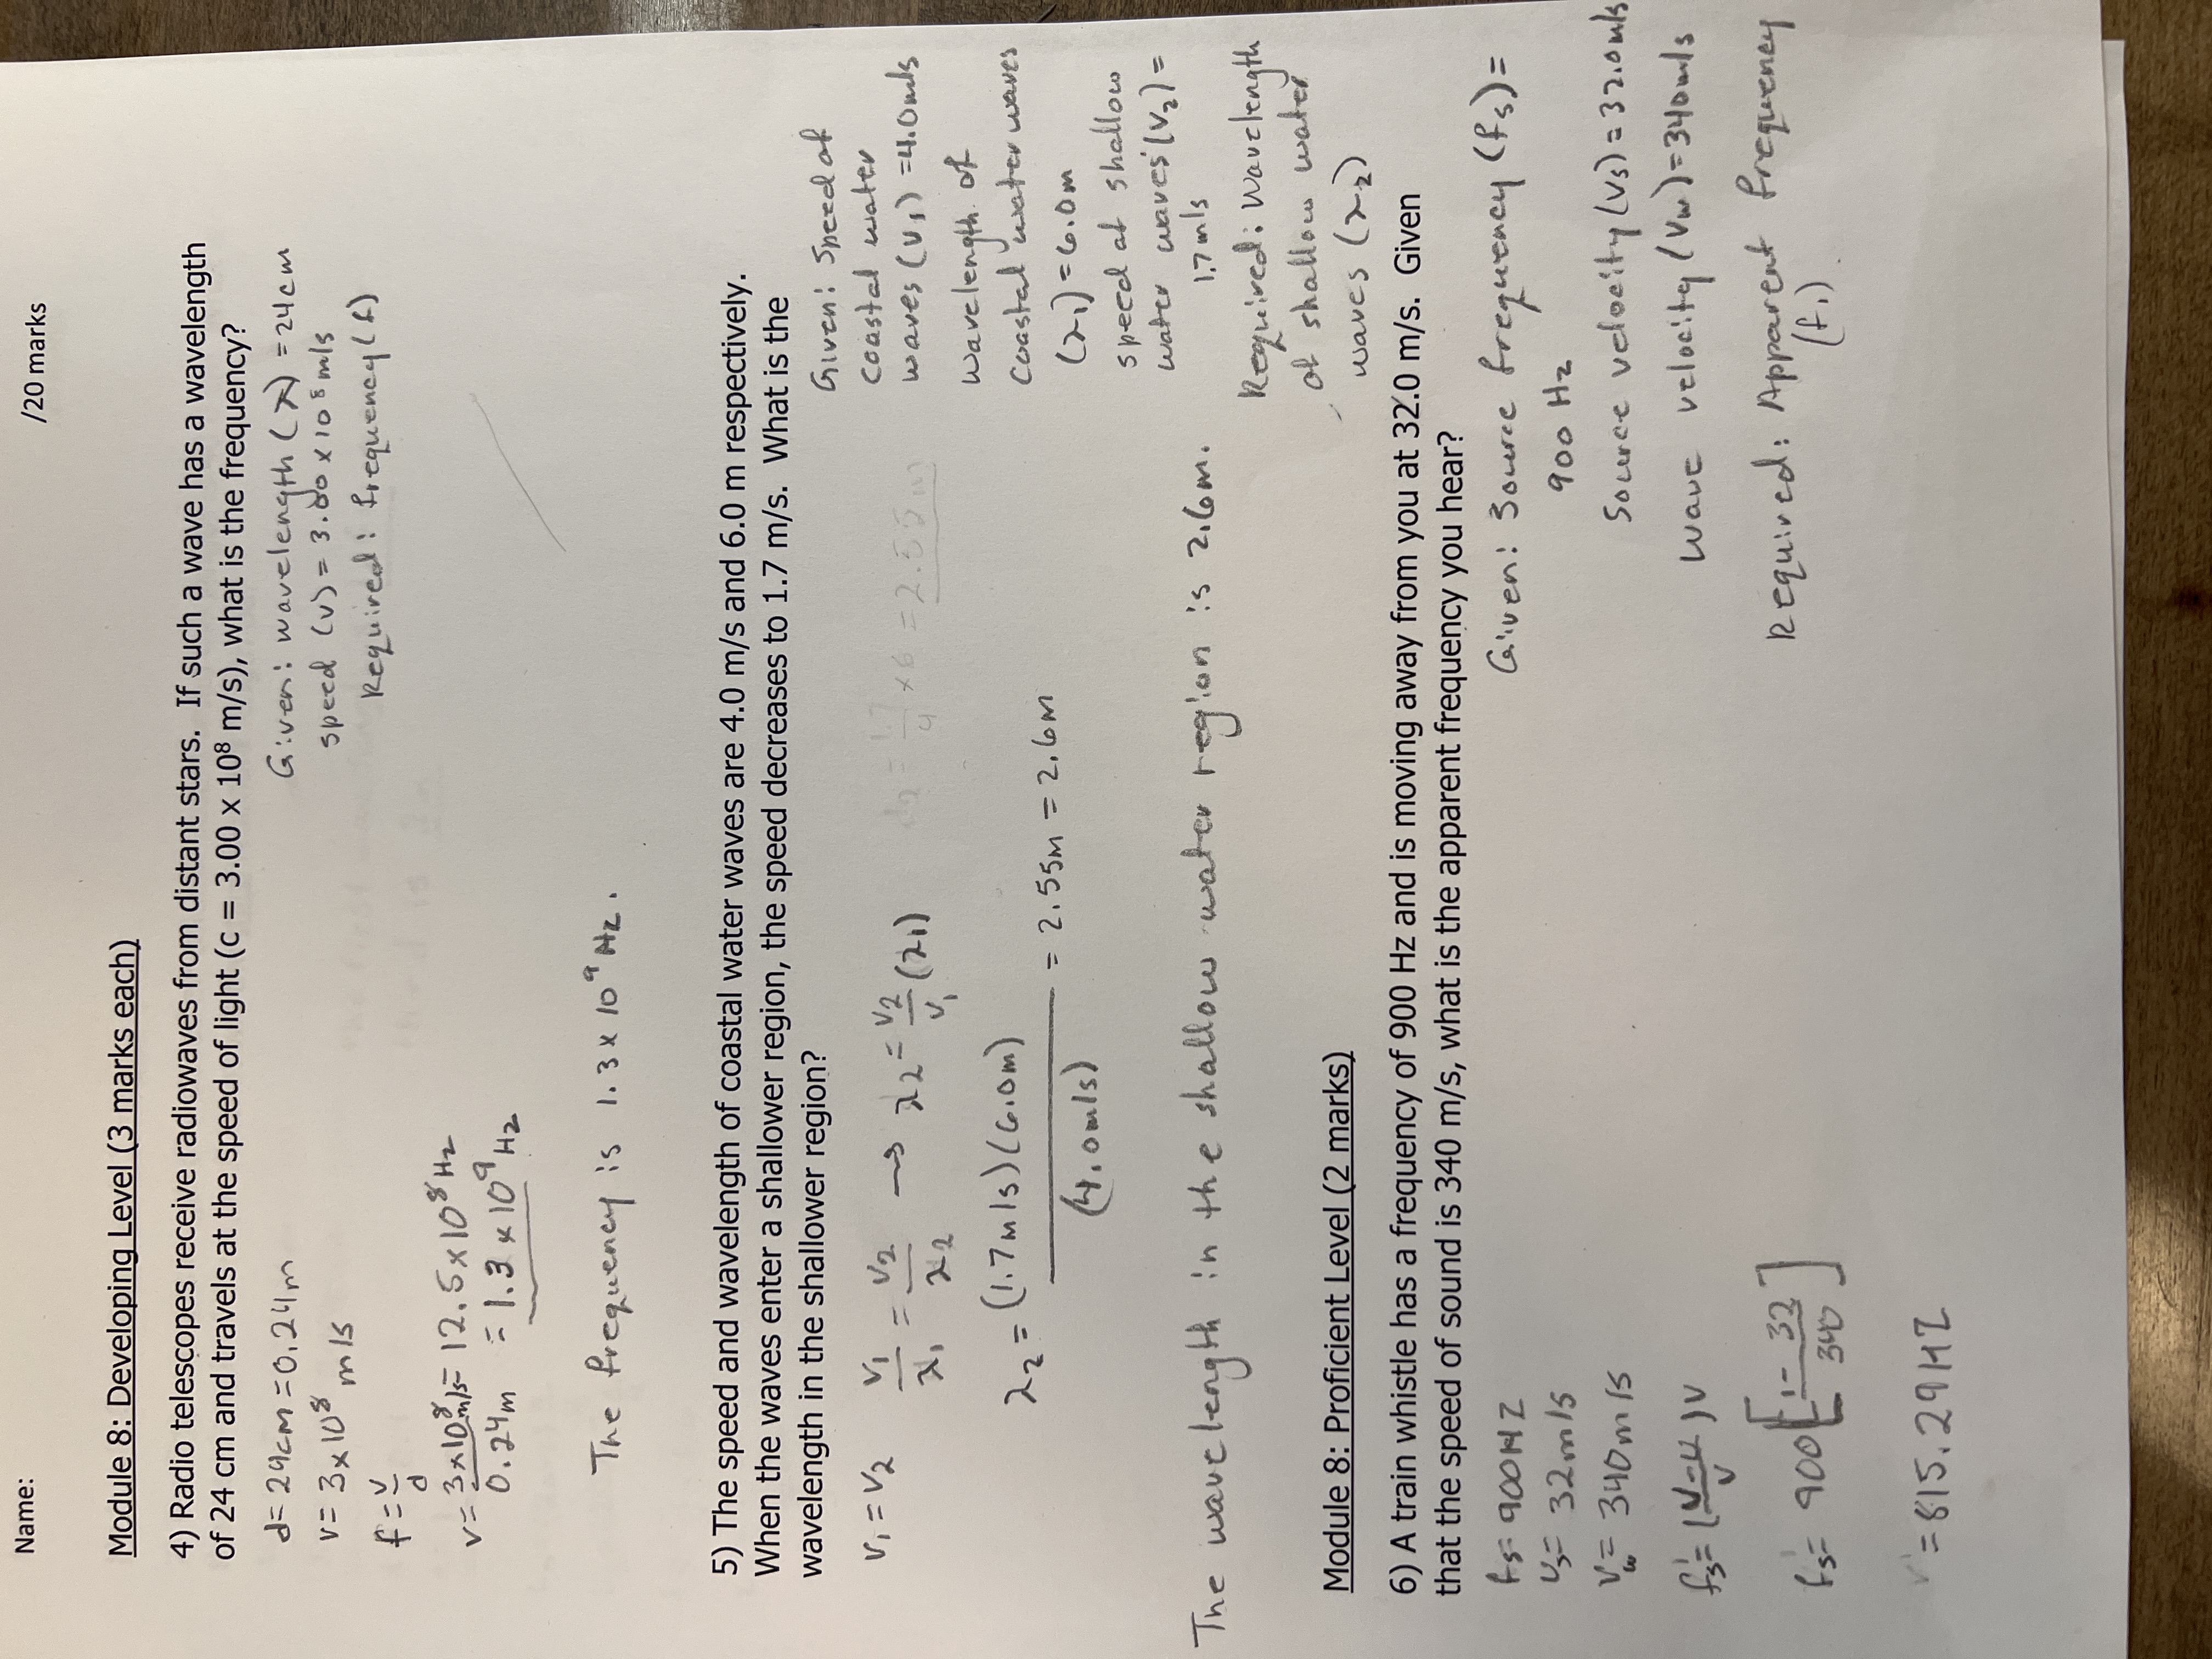 Name:
/20 marks
Module 8: Developing Level (3 marks each)
4) Radio telescopes receive radiowaves from distant stars. If such a wave has a wavelength
of 24 cm and travels at the speed of light (c = 3.00 x 10⁸ m/s), what is the frequency?
d= 24cm = 0.24m
v= 3x10⁸ m/s
f = v/d
v= 3x10⁸m/s / 0.24m = 12.5x10⁸Hz
= 1.3 x 10⁹ Hz
Given: wavelength (λ) = 24cm
speed (v) = 3.00 x 10⁸ m/s
Required: frequency (f)
The frequency is 1.3 x 10⁹ Hz.
5) The speed and wavelength of coastal water waves are 4.0 m/s and 6.0 m respectively.
When the waves enter a shallower region, the speed decreases to 1.7 m/s. What is the
wavelength in the shallower region?
V₁ = V₂ V₁/λ₁ = V₂/λ₂ → λ2 = V₂/V₁ (λ1)
λ₂ = (1.7m/s)(6.0m) / (4.0m/s) = 2.55m = 2.6m
1.7/4 x 6 = 2.55m
Given: Speed of
coastal water
waves (V₁) = 4.0m/s
wavelength of
coastal water waves
(λ₁) = 6.0m
speed at shallow
water waves (V₂) =
1.7m/s
Required: wavelength
of shallow water
waves (λ₂)
The wavelength in the shallow water region is 2.6m.
Module 8: Proficient Level (2 marks)
6) A train whistle has a frequency of 900 Hz and is moving away from you at 32.0 m/s. Given
that the speed of sound is 340 m/s, what is the apparent frequency you hear?
fs= 900HZ
Vs= 32m/s
Vw= 340m/s
fs'= 900[1- 32/340]
v'= 815.29HZ
Given: Source frequency (fs) =
900 Hz
Source velocity (Vs) = 32.0m/s
Wave velocity (Vw) = 340m/s
Required: Apparent frequency
(f₁)